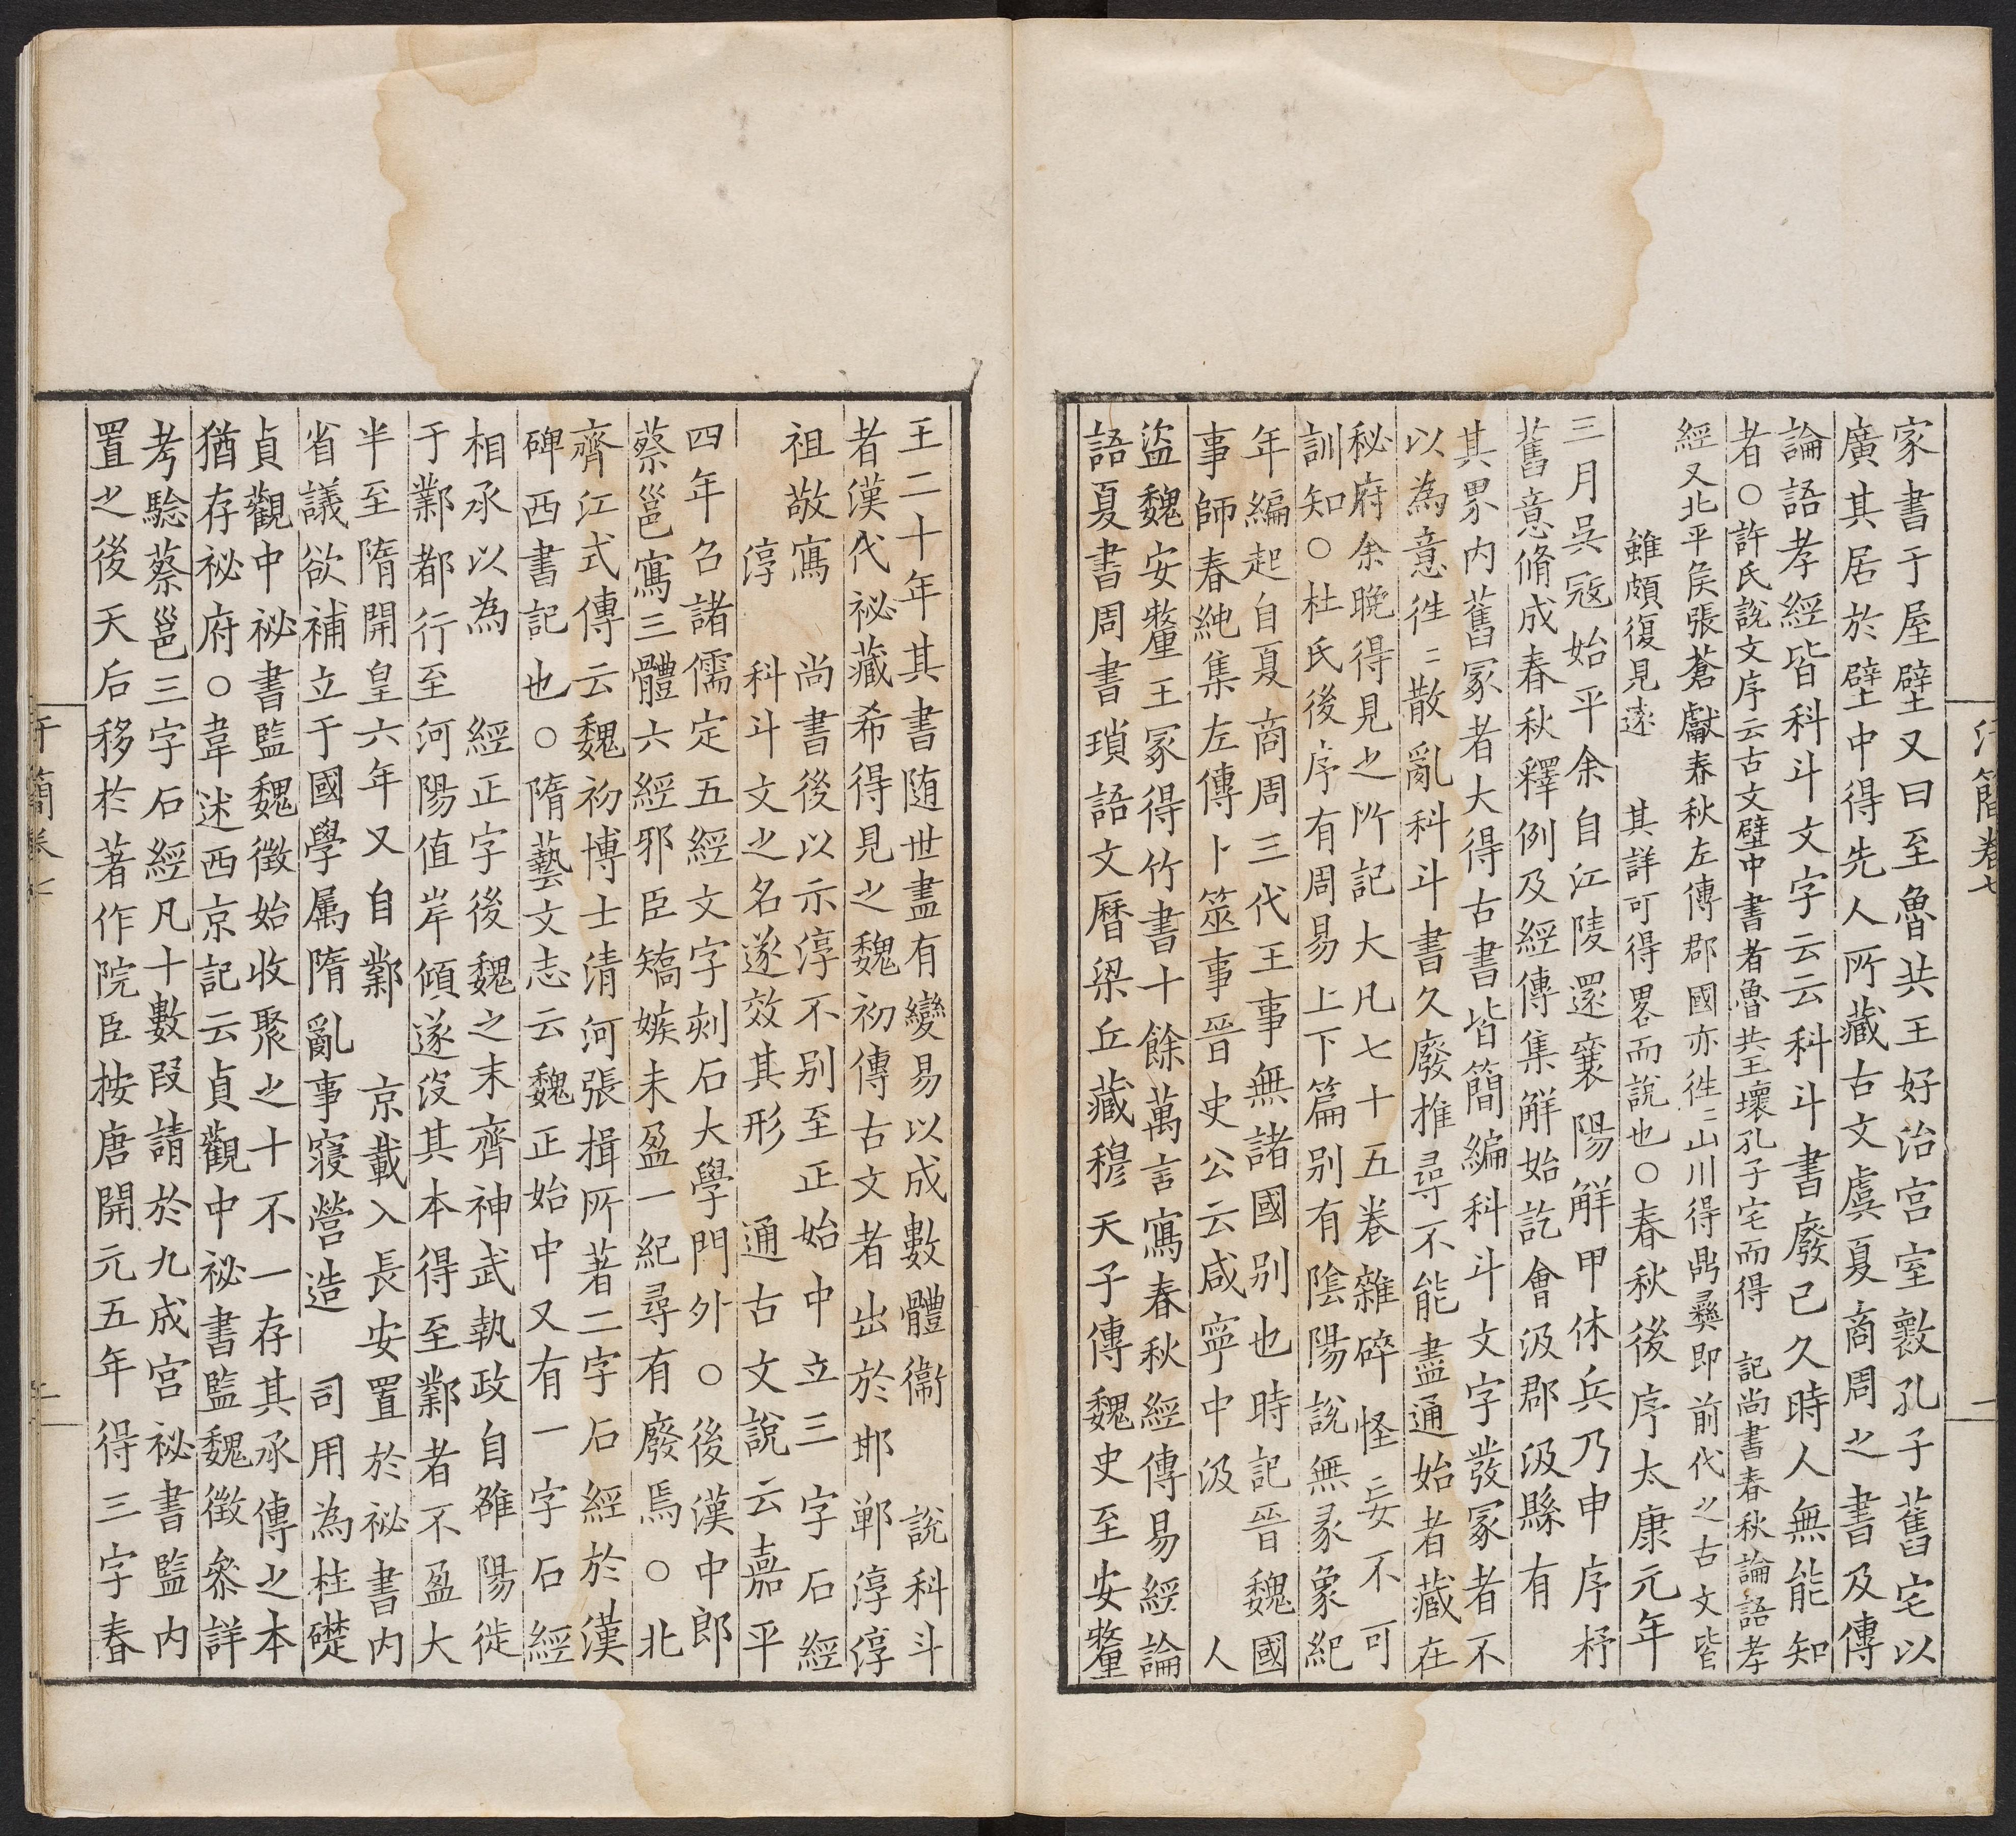 汗簡卷七
二
家書于屋壁又曰至魯共王好治宮室斁孔子舊宅以
廣其居於壁中得先人所藏古文虞夏商周之書及傳
論語孝經皆科斗文字云云科斗書廢已久時人無能知
者○許氏說文序云古文壁中書者魯共王壞孔子宅而得 記尚書春秋論語孝
經又北平矦張蒼獻春秋左傳郡國亦徃〻山川得鼎彞即前代之古文皆
雖頗復見遠 其詳可得畧而說也○春秋後序太康元年
三月吳冦始平余自江陵還襄陽解甲休兵乃申 序杼
舊意脩成春秋釋例及經傳集解始訖會汲郡汲縣有
其界内舊冢者大得古書皆簡編科斗文字發冢者不
以為意徃〻散亂科斗書久廢推尋不能盡通始者藏在
秘府余晚得見之所記大凡七十五卷雜碎怪妄不可
訓知○杜氏後序有周易上下篇别有陰陽說無彖象紀
年編起自夏商周三代王事無諸國别也時記晉魏國
事師春純集左傳卜筮事晉史公云咸寧中汲 人
盜魏安釐王冢得竹書十餘萬言寫春秋經傳易經論
語夏書周書瑣語文曆梁丘藏穆天子傳魏史至安釐
王二十年其書随世盡有變易以成數體衞 說科斗
者漢代祕藏希得見之魏初傳古文者出於邯鄲淳淳
祖敬寫 尚書後以示淳不别至正始中立三字石經
淳 科斗文之名遂效其形 通古文說云嘉平
四年召諸儒定五經文字刻石大學門外○後漢中郎
蔡邕寫三體六經邪臣矯嫉未盈一紀尋有廢焉○北
齊江式傳云魏初博士清河張揖所著二字石經於漢
碑西書記也○隋藝文志云魏正始中又有一字石經
相承以為 經正字後魏之末齊神武執政自雒陽徙
于鄴都行至河陽值岸傾遂没其本得至鄴者不盈大
半至隋開皇六年又自鄴 京載入長安置於祕書内
省議欲補立于國學属隋亂事寝營造 司用為柱礎
貞觀中祕書監魏徵始收聚之十不一存其承傳之本
猶存祕府○韋述西京記云貞觀中祕書監魏徵叅詳
考驗蔡邕三字石經凡十數段請於九成宫祕書監内
置之後天后移於著作院臣按唐開元五年得三字春
汗簡卷七
二